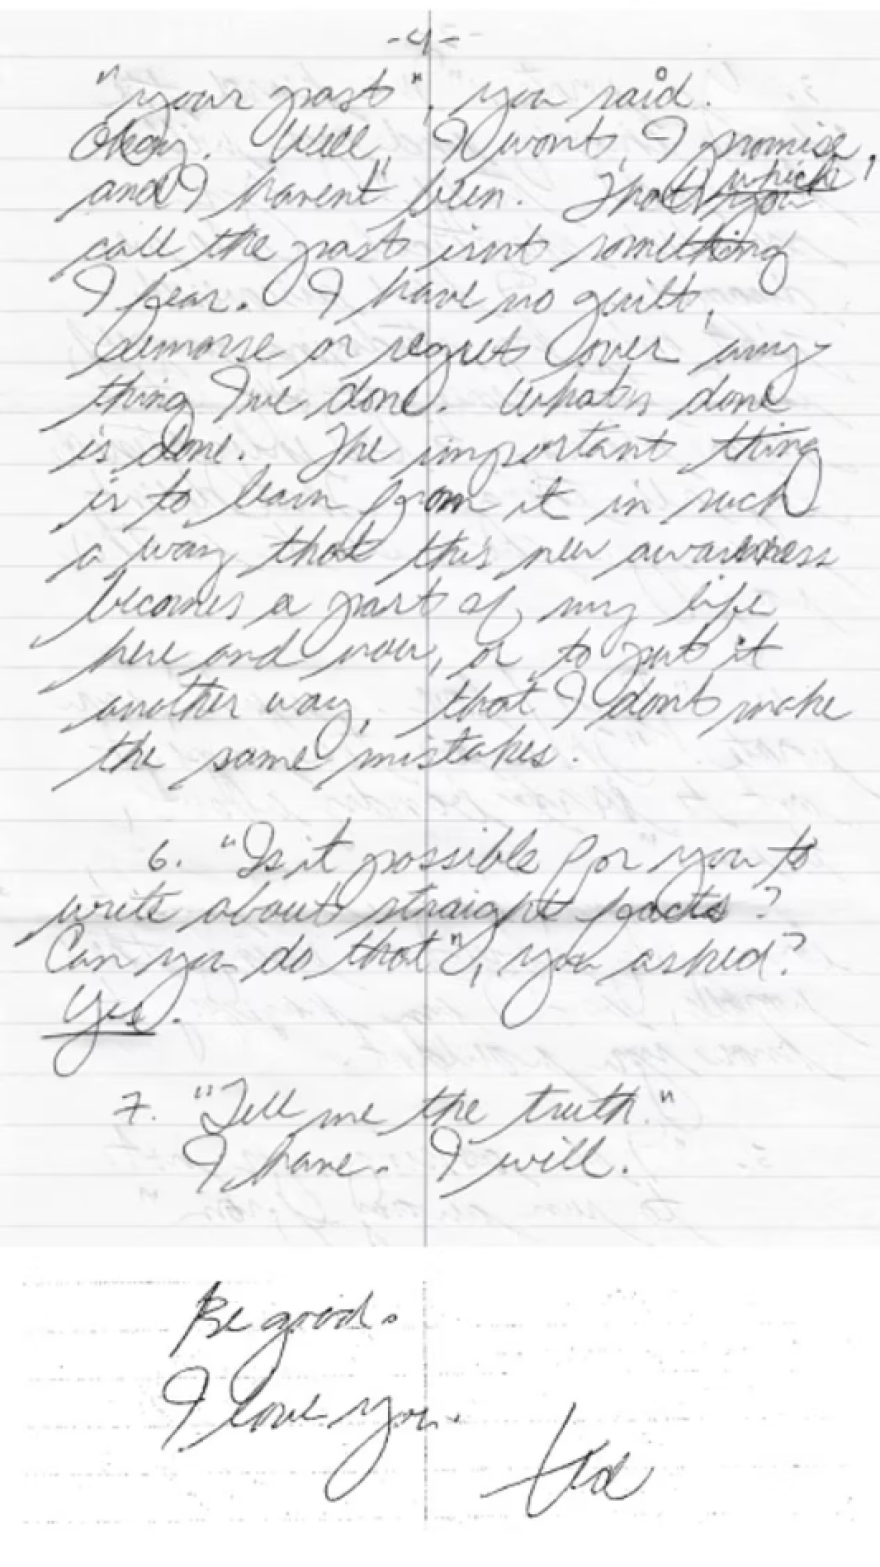 -4-
"your past", you said.
Okay. Well, I wont, I promise,
and I havent been. That which
call the past isnt something
I fear. I have no guilt,
remorse or regret over any-
thing I've done. Whats done
is done. The important thing
is to learn from it in such
a way that this new awareness
becomes a part of my life
here and now, or to put it
another way, that I dont make
the same mistakes.
6. "Is it possible for you to
write about straight facts?
Can you do that", you asked?
Yes.
7. "Tell me the truth."
I have. I will.
Be good.
I love you.
ted